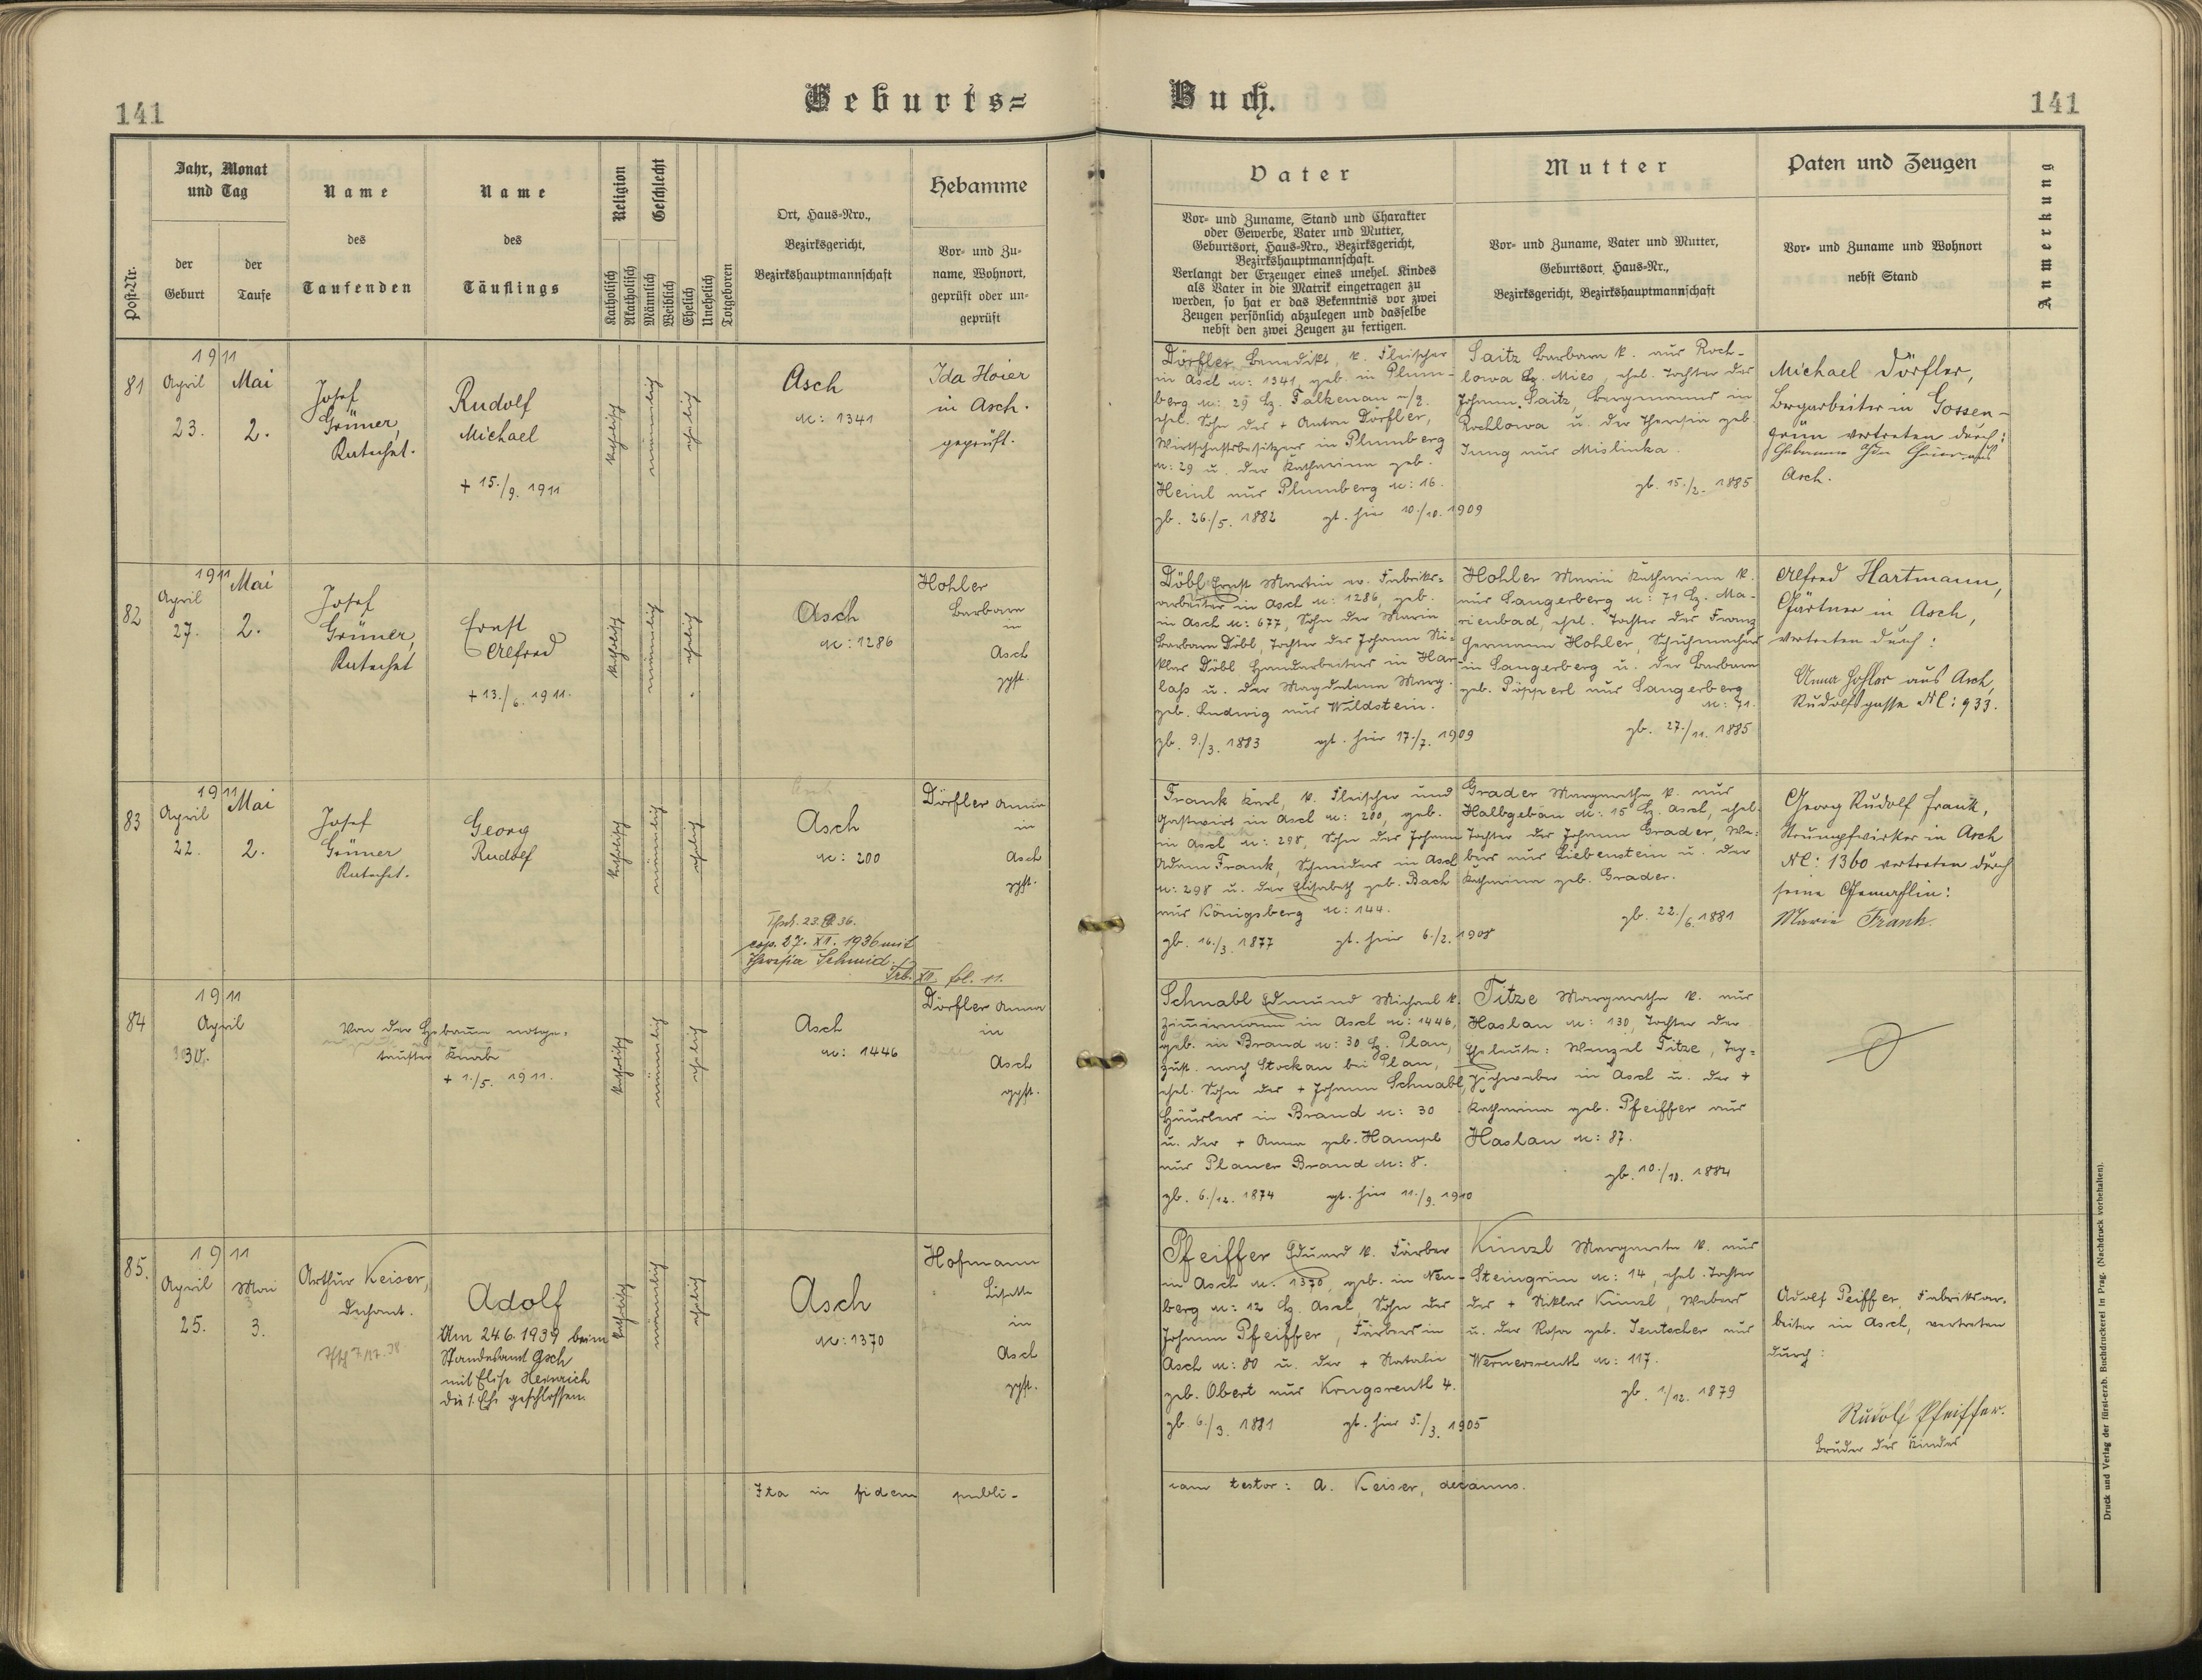 141
Geburts=
Buch.
141
Post-Nr.
Jahr, Monat
und Tag
der
Geburt
der
Taufe
Name
des
Taufenden
Name
des
Täuflings
Religion
Katholisch
Akatholisch
Geschlecht
Männlich
Weiblich
Ehelich
Unehelich
Totgeboren
Ort, Haus-Nro.,
Bezirksgericht,
Bezirkshauptmannschaft
Hebamme
Vor- und Zu-
name, Wohnort,
geprüft oder un-
geprüft
Vater
Vor- und Zuname, Stand und Charakter
oder Gewerbe, Vater und Mutter,
Geburtsort, Haus-Nro., Bezirksgericht,
Bezirkshauptmannschaft.
Verlangt der Erzeuger eines unehel. Kindes
als Vater in die Matrik eingetragen zu
werden, so hat er das Bekenntnis vor zwei
Zeugen persönlich abzulegen und dasselbe
nebst den zwei Zeugen zu fertigen.
Mutter
Vor- und Zuname, Vater und Mutter,
Geburtsort, Haus-Nr.,
Bezirksgericht, Bezirkshauptmannschaft
Paten und Zeugen
Vor- und Zuname und Wohnort
nebst Stand
Anmerkung
81
1911
April
23.
Mai
2.
Josef
Grüner,
Katechet.
Rudolf
Michael
+ 15./9. 1911
katholisch
männlich
ehelich
Asch
N: 1341
Ida Hoier
in Asch.
geprüft.
Dörfler Benedikt, k. Fleischer
in Asch N: 1341, geb. in Plum-
berg N: 29 Bz. Falkenau a/E.
ehel. Sohn des + Anton Dörfler,
Wirtschaftsbesitzers in Plumberg
N: 29 u. der Katharina geb.
Heinl aus Plumberg N: 16.
gb. 26./5. 1882 gt. hier 10./10. 1909
Saitz Barbara k. aus Roch-
lowa Bz. Mies, ehel. Tochter des
Johann Saitz, Bergmanns in
Rochlowa u. der Theresia geb.
Jung aus Mislinka.
gb. 15./2. 1885
Michael Dörfler,
Bergarbeiter in Gossen-
grün vertreten durch:
Hebamme Ida Hoier aus
Asch.
82
1911
April
27.
Mai
2.
Josef
Grüner,
Katechet
Ernst
Alfred
+ 13./6. 1911.
katholisch
männlich
ehelich
Asch
N: 1286
Hohler
Barbara
in
Asch
gpft.
Döbl Ernst Martin ev. Fabriks=
arbeiter in Asch N: 1286, geb.
in Asch N: 677, Sohn der Maria
Barbara Döbl, Tochter des Johann Ni=
klas Döbl Handarbeiters in Har-
lass u. der Magdalena Marg.
geb. Ludwig aus Wildstein.
gb. 9./3. 1883 gt. hier 17./7. 1909
Hohler Maria Katharina k.
aus Sangerberg N: 71 Bz. Ma-
rienbad, ehel. Tochter des Franz
Hermann Hohler, Schuhmachers
in Sangerberg u. der Barbara
geb. Pöpperl aus Sangerberg
N: 71.
gb. 27./11. 1885
Alfred Hartmann,
Gärtner in Asch,
vertreten durch:
Anna Hohler aus Asch,
Rudolfsgasse N: 933.
83
1911
April
22.
Mai
2.
Josef
Grüner
Katechet.
Georg
Rudolf
katholisch
männlich
ehelich
Asch
N: 200
cop. 27. XII. 1936 mit
Theresia Schmid.
Trb. XII. fol. 11.
Dörfler Anna
in
Asch
gpft.
Frank Karl, k. Fleischer und
Gastwirt in Asch N: 200, geb.
in Asch N: 298, Sohn des Johann
Adam Frank, Schneiders in Asch
N: 298 u. der Elisabeth geb. Bach
aus Königsberg N: 144.
gb. 16./3. 1877 gt. hier 6./2. 1908
Grader Margaretha k. aus
Halbgebäu N: 15 Bz. Asch, ehel.
Tochter des Johann Grader, We=
bers aus Liebenstein u. der
Katharina geb. Grader.
gb. 22./6. 1881
Georg Rudolf Frank,
Strumpfwirker in Asch
N: 1360 vertreten durch
seine Gemahlin:
Marie Frank.
84
1911
April
30.
Von der Hebamme notge=
taufter Knabe
+ 1./5. 1911.
katholisch
männlich
ehelich
Asch
N: 1446
Dörfler Anna
in
Asch
gpft.
Schnabl Edmund Michael k.
Zimmermann in Asch N: 1446,
geb. in Brand N: 30 Bz. Plan,
zust. nach Stockau bei Plan,
ehel. Sohn des + Johann Schnabl,
Häuslers in Brand N: 30
u. der + Anna geb. Hampl
aus Planer Brand N: 8.
gb. 6./12. 1874 gt. hier 11./9. 1910
Titze Margaretha k. aus
Haslau N: 130, Tochter der
Eheleute: Wenzel Titze, Tep=
pichweber in Asch u. der +
Katharina geb. Pfeiffer aus
Haslau N: 87.
gb. 10./10. 1884
85.
1911
April
25.
Mai
3.
Arthur Keiser,
Dechant.
Adolf
Am 24.6.1939 beim
Standesamt Asch
mit Elise Heinrich
die 1. Ehe geschlossen.
katholisch
männlich
ehelich
Asch
N: 1370
Hofmann
Lisette
in
Asch
gpft.
Pfeiffer Eduard k. Färber
in Asch N. 1370, geb. in Neu-
berg N: 12 Bz. Asch, Sohn des
Johann Pfeiffer, Färbers in
Asch N: 80 u. der + Natalie
geb. Obert aus Krugsreuth 4.
gb. 6./3. 1881 gt. hier 5./3. 1905
Künzl Margareta k. aus
Steingrün N: 14, ehel. Tochter
des + Niklas Künzl, Webers
u. der Rosa geb. Jentscher aus
Wernersreuth N: 117.
gb. 1/12. 1879
Adolf Peiffer, Fabriksar-
beiter in Asch, vertreten
durch:
Rudolf Pfeiffer.
Bruder des Kindes
Ita in fidem publi-
cam testor: A. Keiser, decanus.
Druck und Verlag der fürst-erzb. Buchdruckerei in Prag. (Nachdruck vorbehalten).